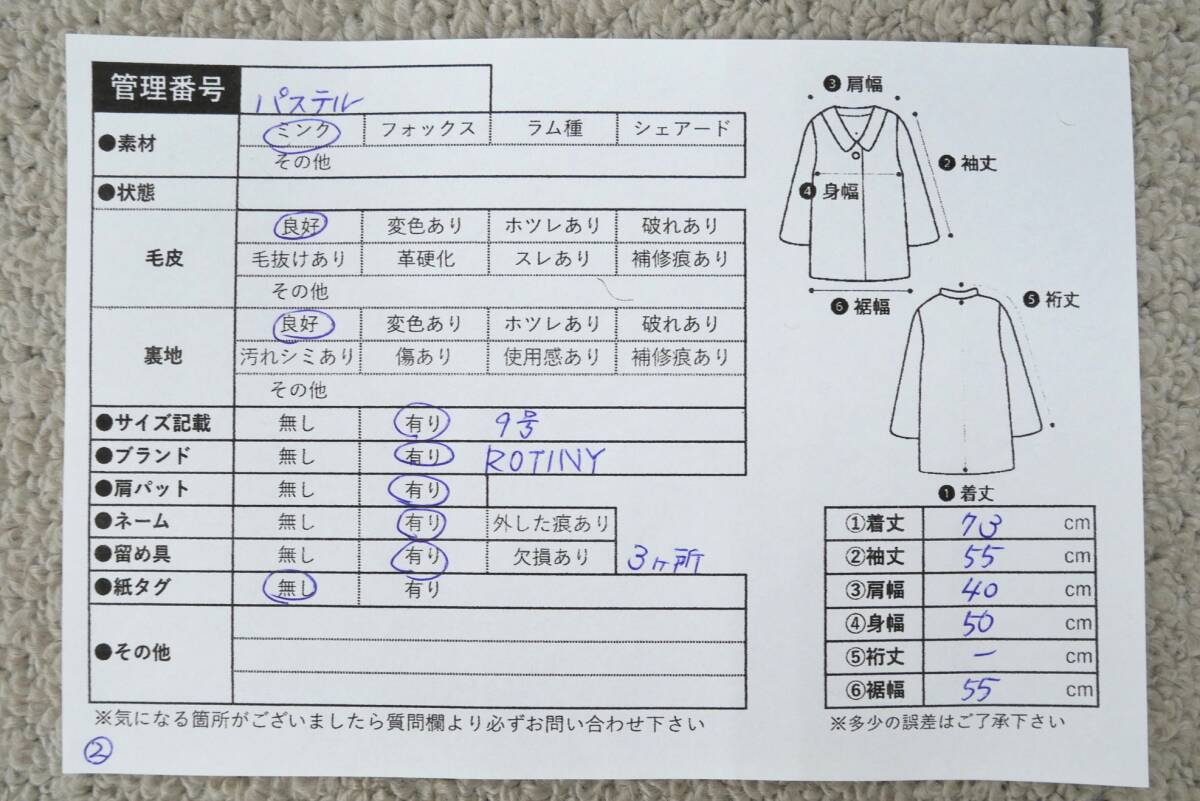 管理番号 パステル
●素材 ミンク フォックス ラム種 シェアード
その他
●状態
毛皮 良好 変色あり ホツレあり 破れあり
毛抜けあり 革硬化 スレあり 補修痕あり
その他
裏地 良好 変色あり ホツレあり 破れあり
汚れシミあり 傷あり 使用感あり 補修痕あり
その他
●サイズ記載 無し 有り 9号
●ブランド 無し 有り ROTINY
●肩パット 無し 有り
●ネーム 無し 有り 外した痕あり
●留め具 無し 有り 欠損あり 3ヶ所
●紙タグ 無し 有り
●その他
※気になる箇所がございましたら質問欄より必ずお問い合わせ下さい
②
❸肩幅
❷袖丈
❹身幅
❻裾幅
❺裄丈
❶着丈
①着丈 73 cm
②袖丈 55 cm
③肩幅 40 cm
④身幅 50 cm
⑤裄丈 － cm
⑥裾幅 55 cm
※多少の誤差はご了承下さい